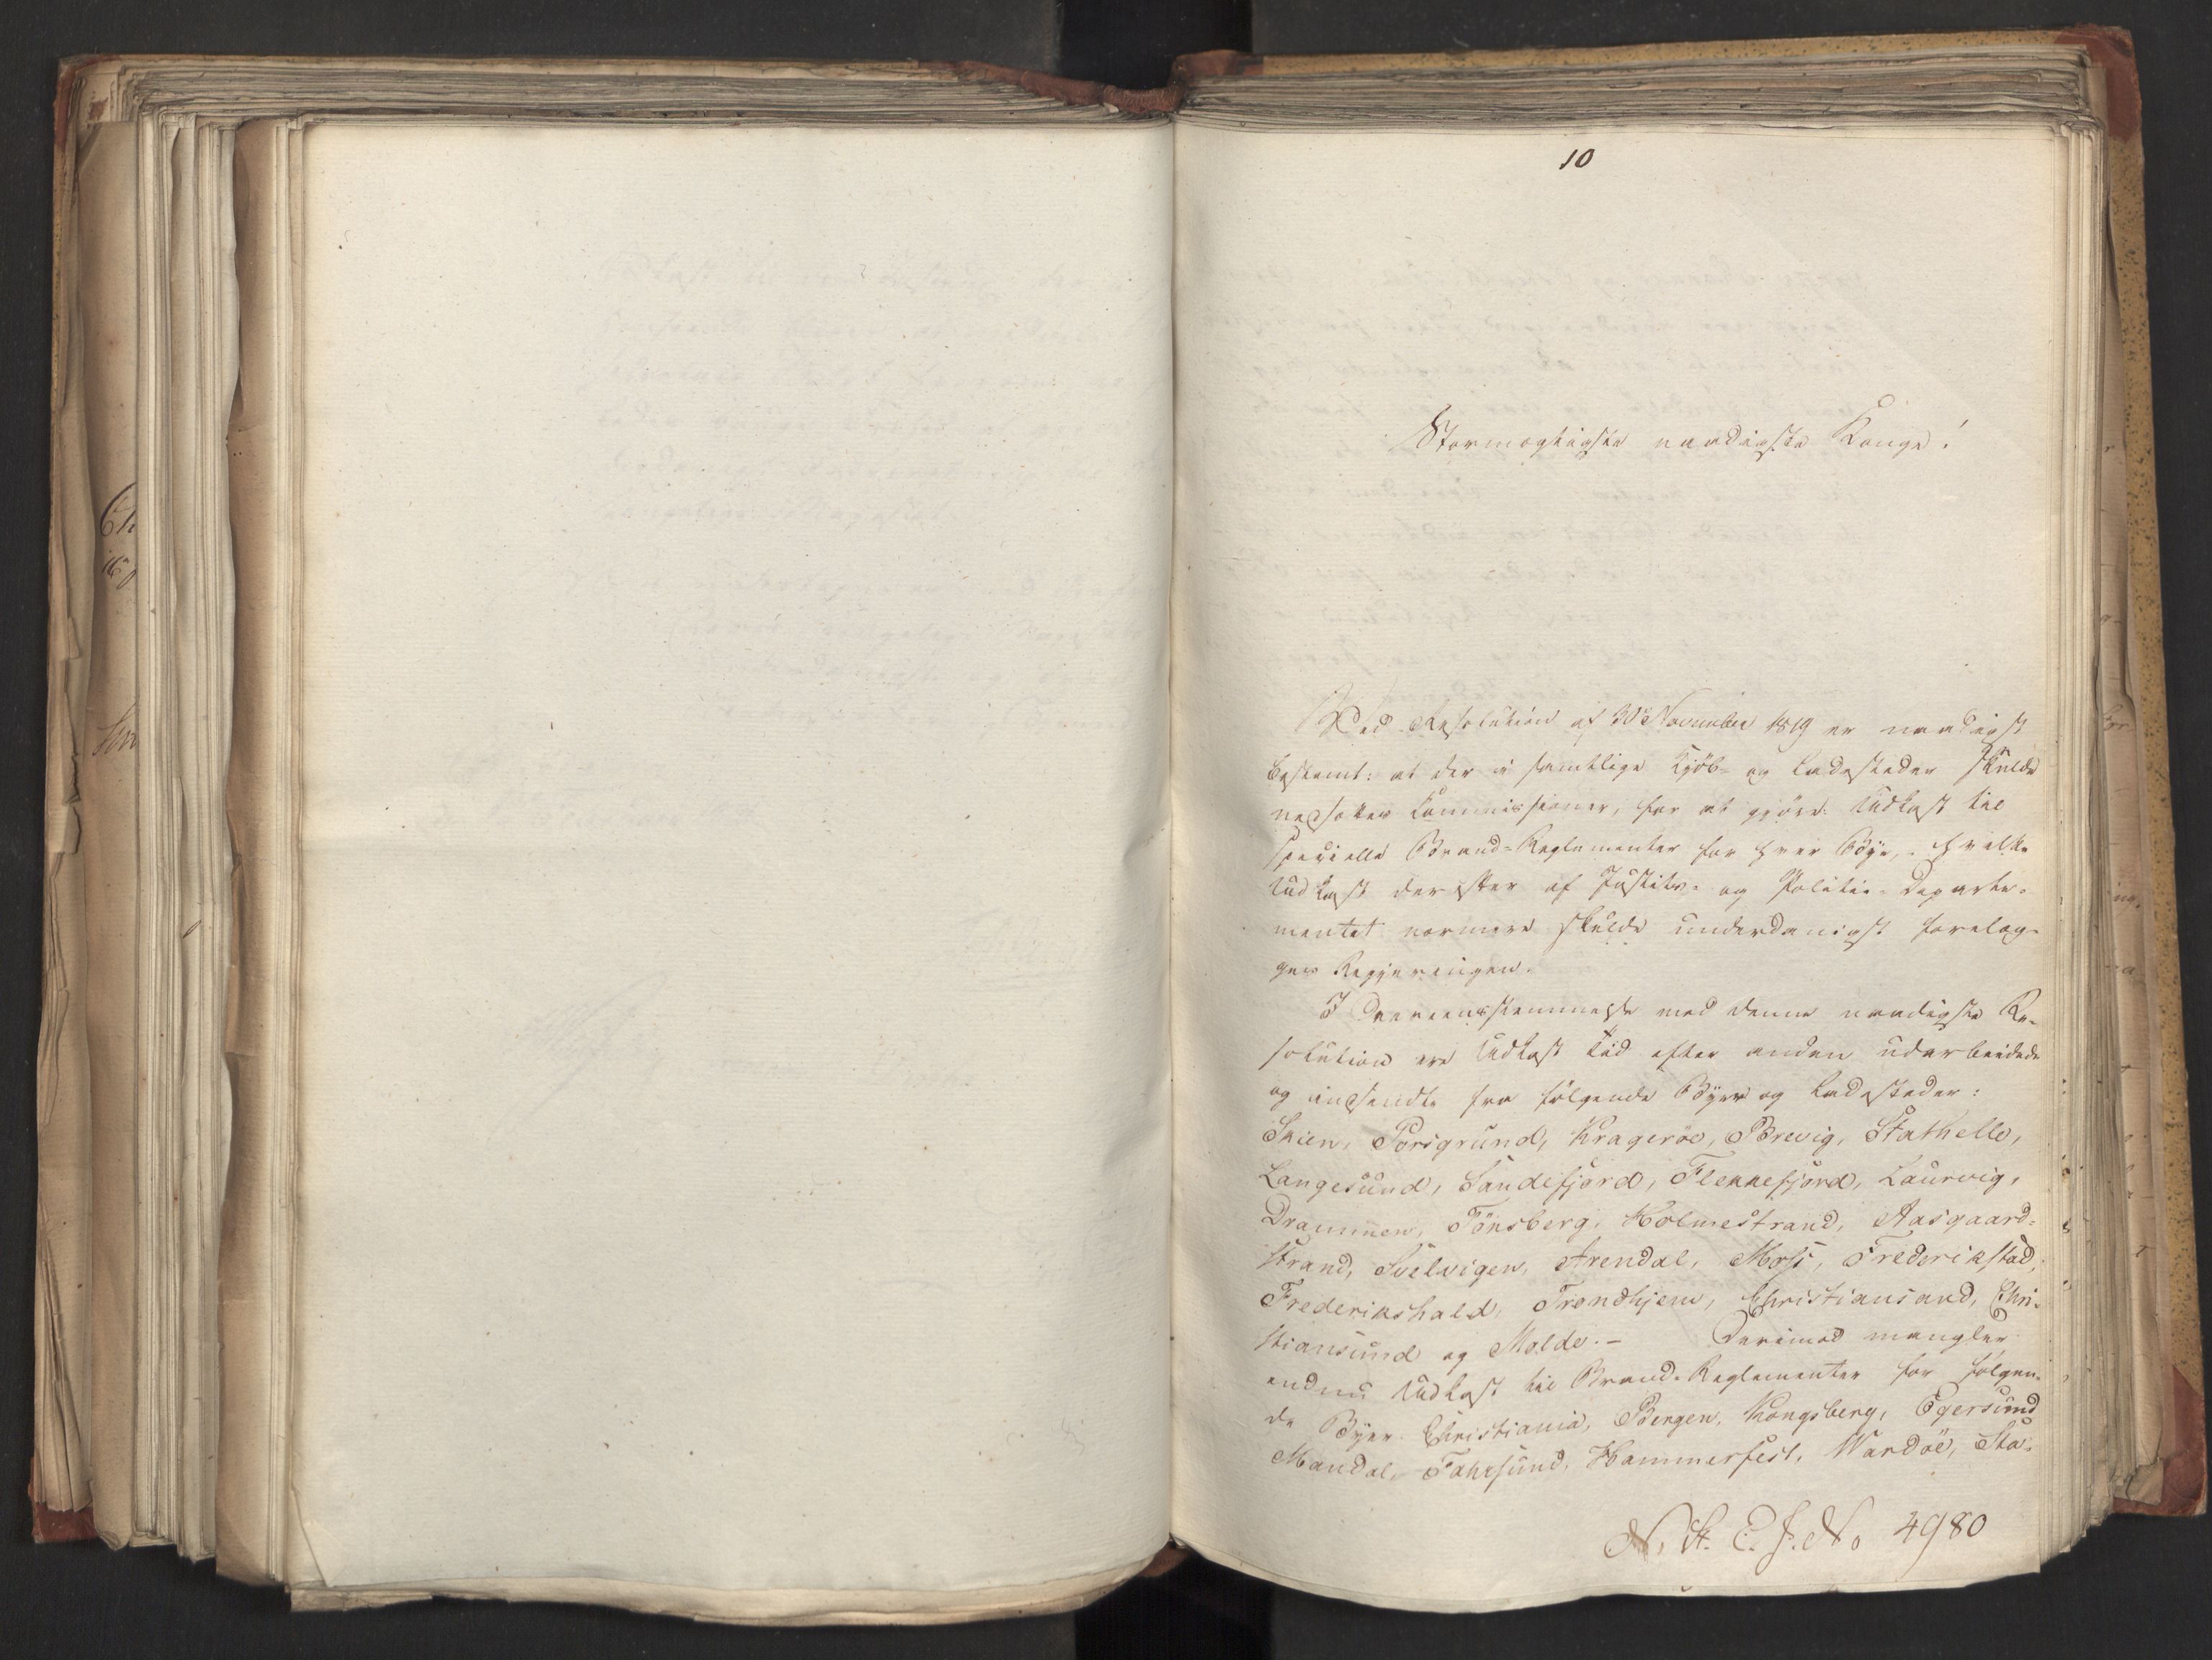 10
Stormægtigste naadigste Konge!
Ved Resolution af 30te November 1819 er naadigst
bestemt: at der i samtlige Kjöb- og Ladesteder skulde
nedsættes Commissioner, for at gjöre Udkast til
specielle Brand-Reglementer for hver Bye, hvilke
Udkast derefter af Justits- og Politie-Departe-
mentet nærmere skulde underdanigst forelæg-
ges Regjeringen.
I Overeensstemmelse med denne naadigste Re-
solution ere Udkast Tid efter anden udarbeidede
og indsendte fra fölgende Byer og Ladesteder:
Skien, Porsgrund, Krageröe, Brevig, Stathelle,
Langesund, Sandefjord, Flekkefjord, Laurvig,
Drammen, Tönsberg, Holmestrand, Aasgaard-
strand, Svelvigen, Arendal, Moss, Frederikstad,
Frederikshald, Trondhjem, Christiansand, Chri-
stiansund og Molde.- Derimod mangler
endnu Udkast til Brand-Reglementer for fölgen-
de Byer Christiania, Bergen, Kongsberg, Egersund
Mandal, Fahrsund, Hammerfest, Wardöe, Sta-
N. St. E. J. No 4980
Ch